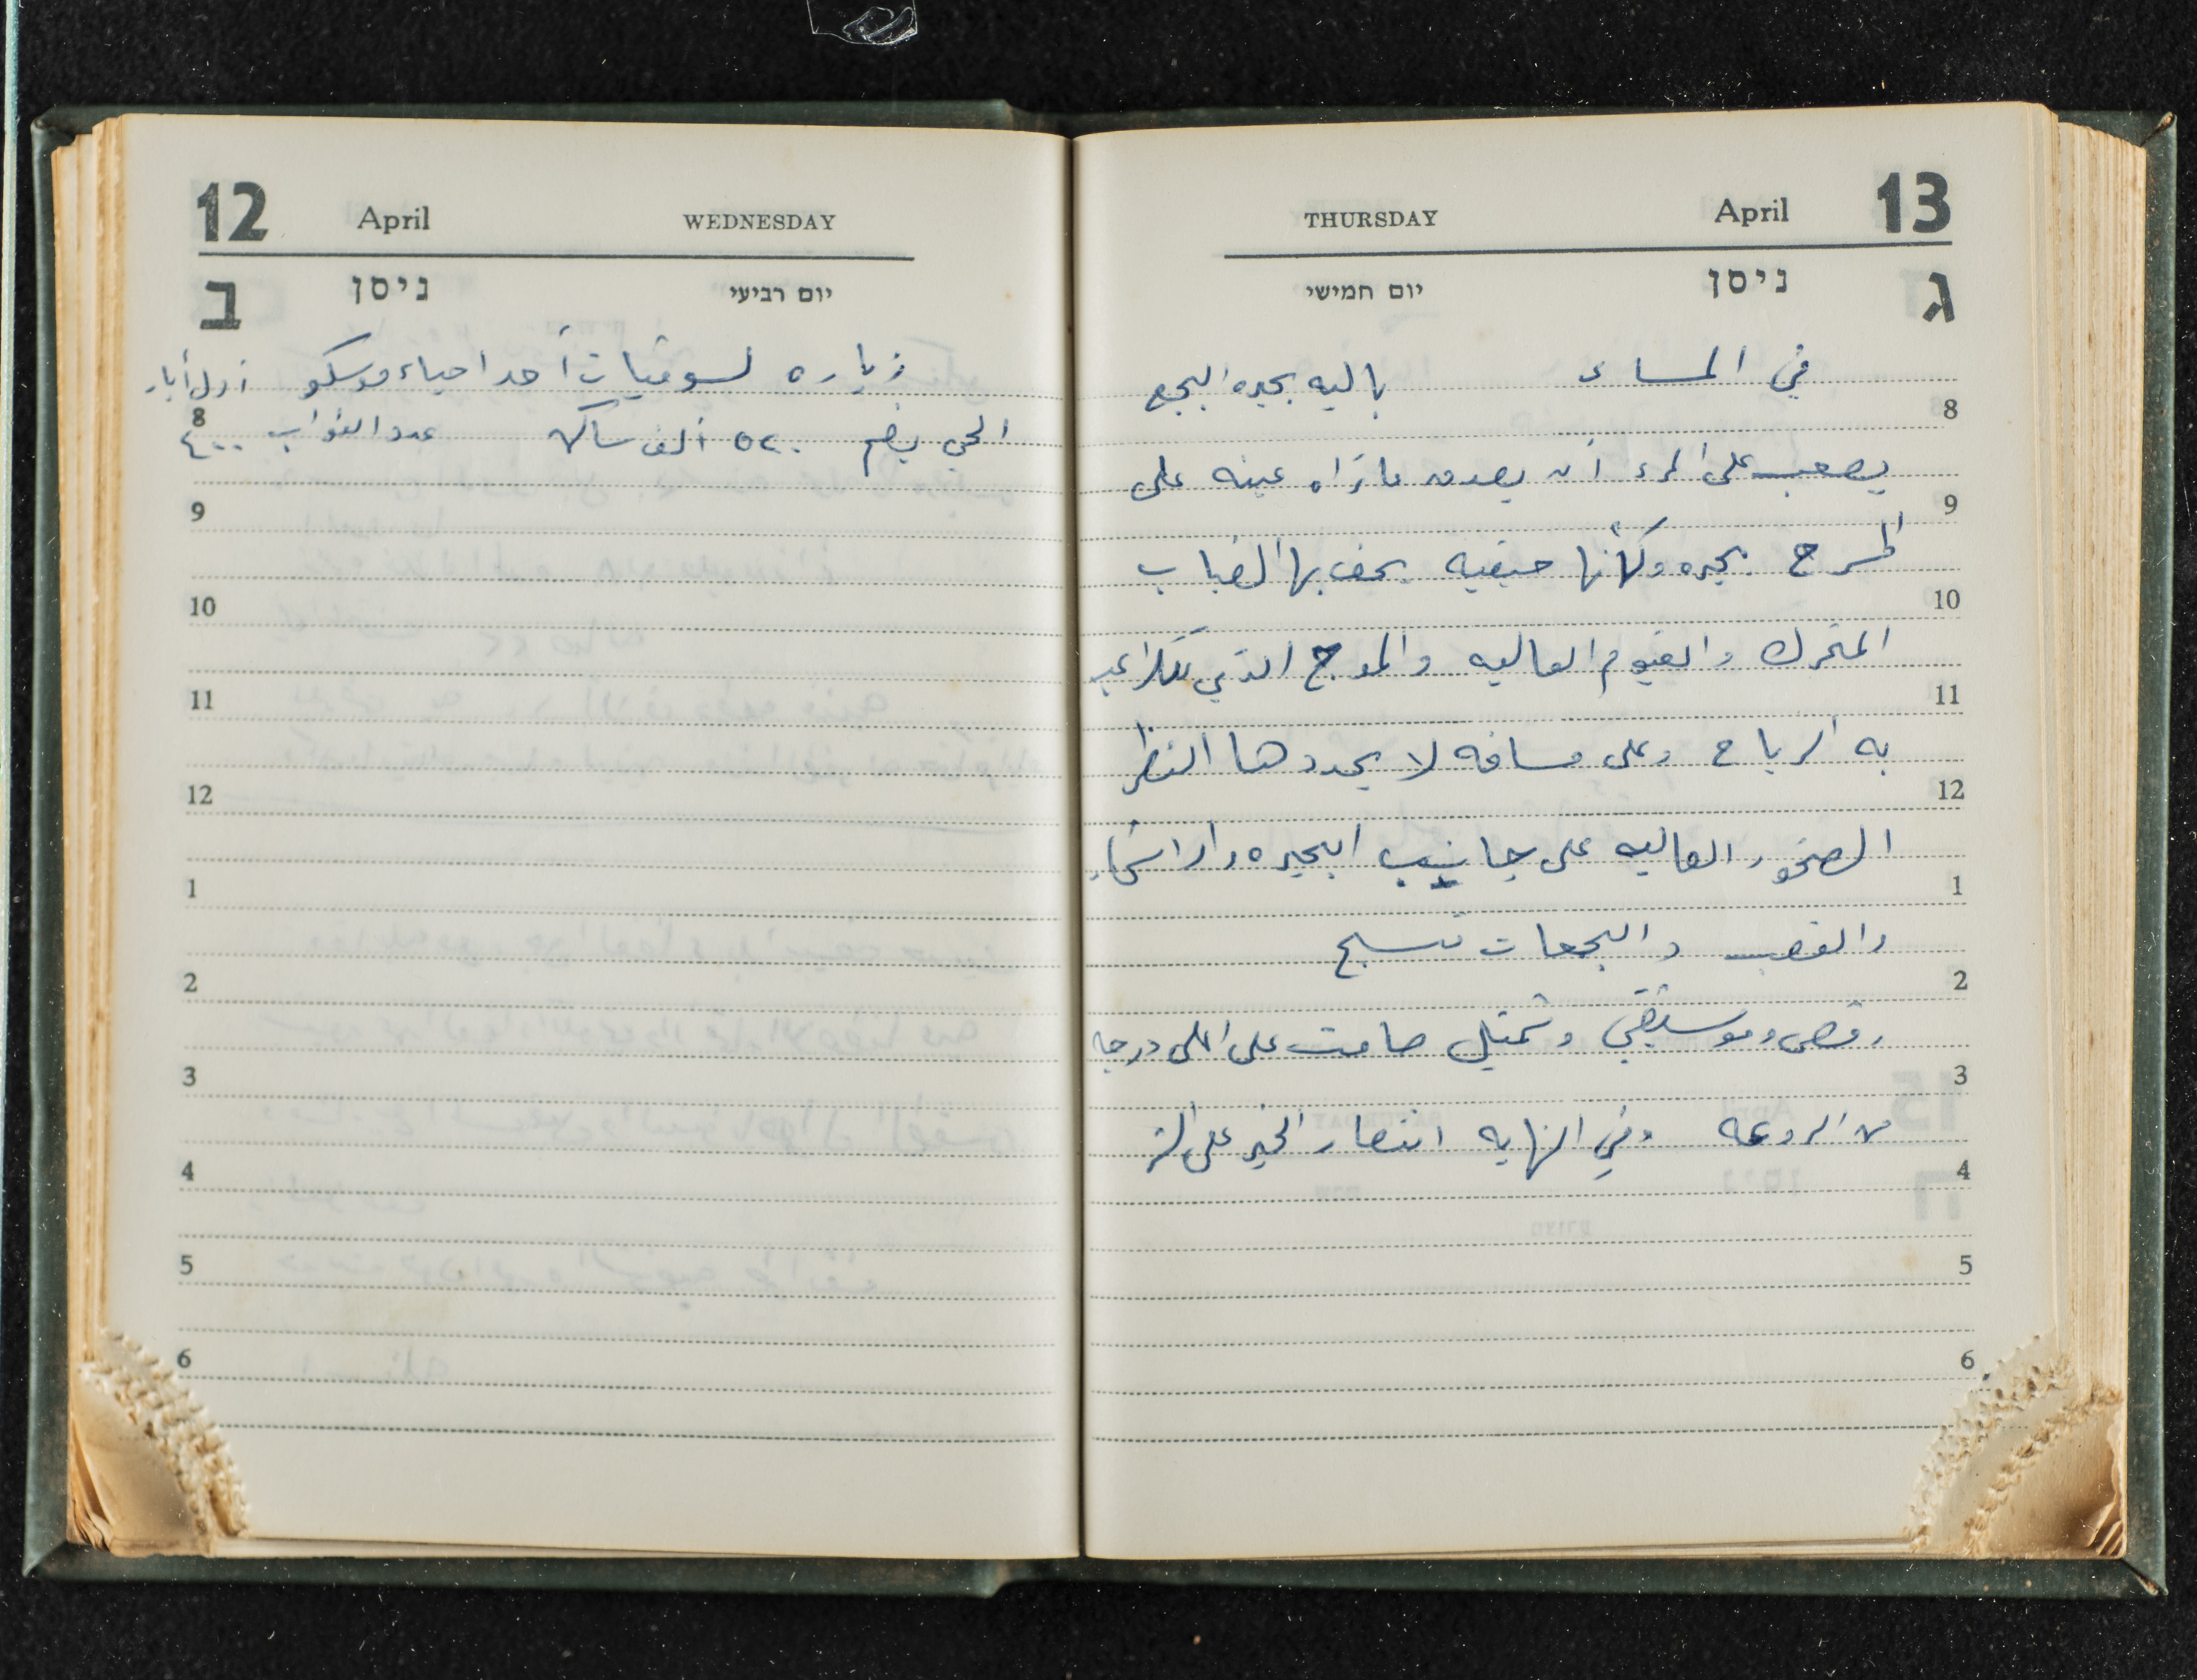 12 April WEDNESDAY
ב ניסן יום רביעי
زياره لسوفيات أحد احياء موسكو اول أيار
الحي يضم ٥٢٠ ألف ساكن عدد النواب ٤٠٠
8
9
10
11
12
1
2
3
4
5
6
THURSDAY April 13
יום חמישי ניסן ג
في المساء باليه بحيره البجع
8
يصعب على المرء أن يصدق ما تراه عينه على
9
المسرح بحيره وكأنها حقيقيه يحف بها الضباب
10
المتحرك والغيوم العاليه والموج الذي
11
به الرياح وعلى مسافه لا يحددها النظر
12
الصخور العاليه على جانب البحيره
1
والقصب والبجعات تسبح
2
رقص وموسيقى وتمثيل صامت على اعلى درجه
3
من الروعه وفي النهايه انتصار الخير على الشر
4
5
6